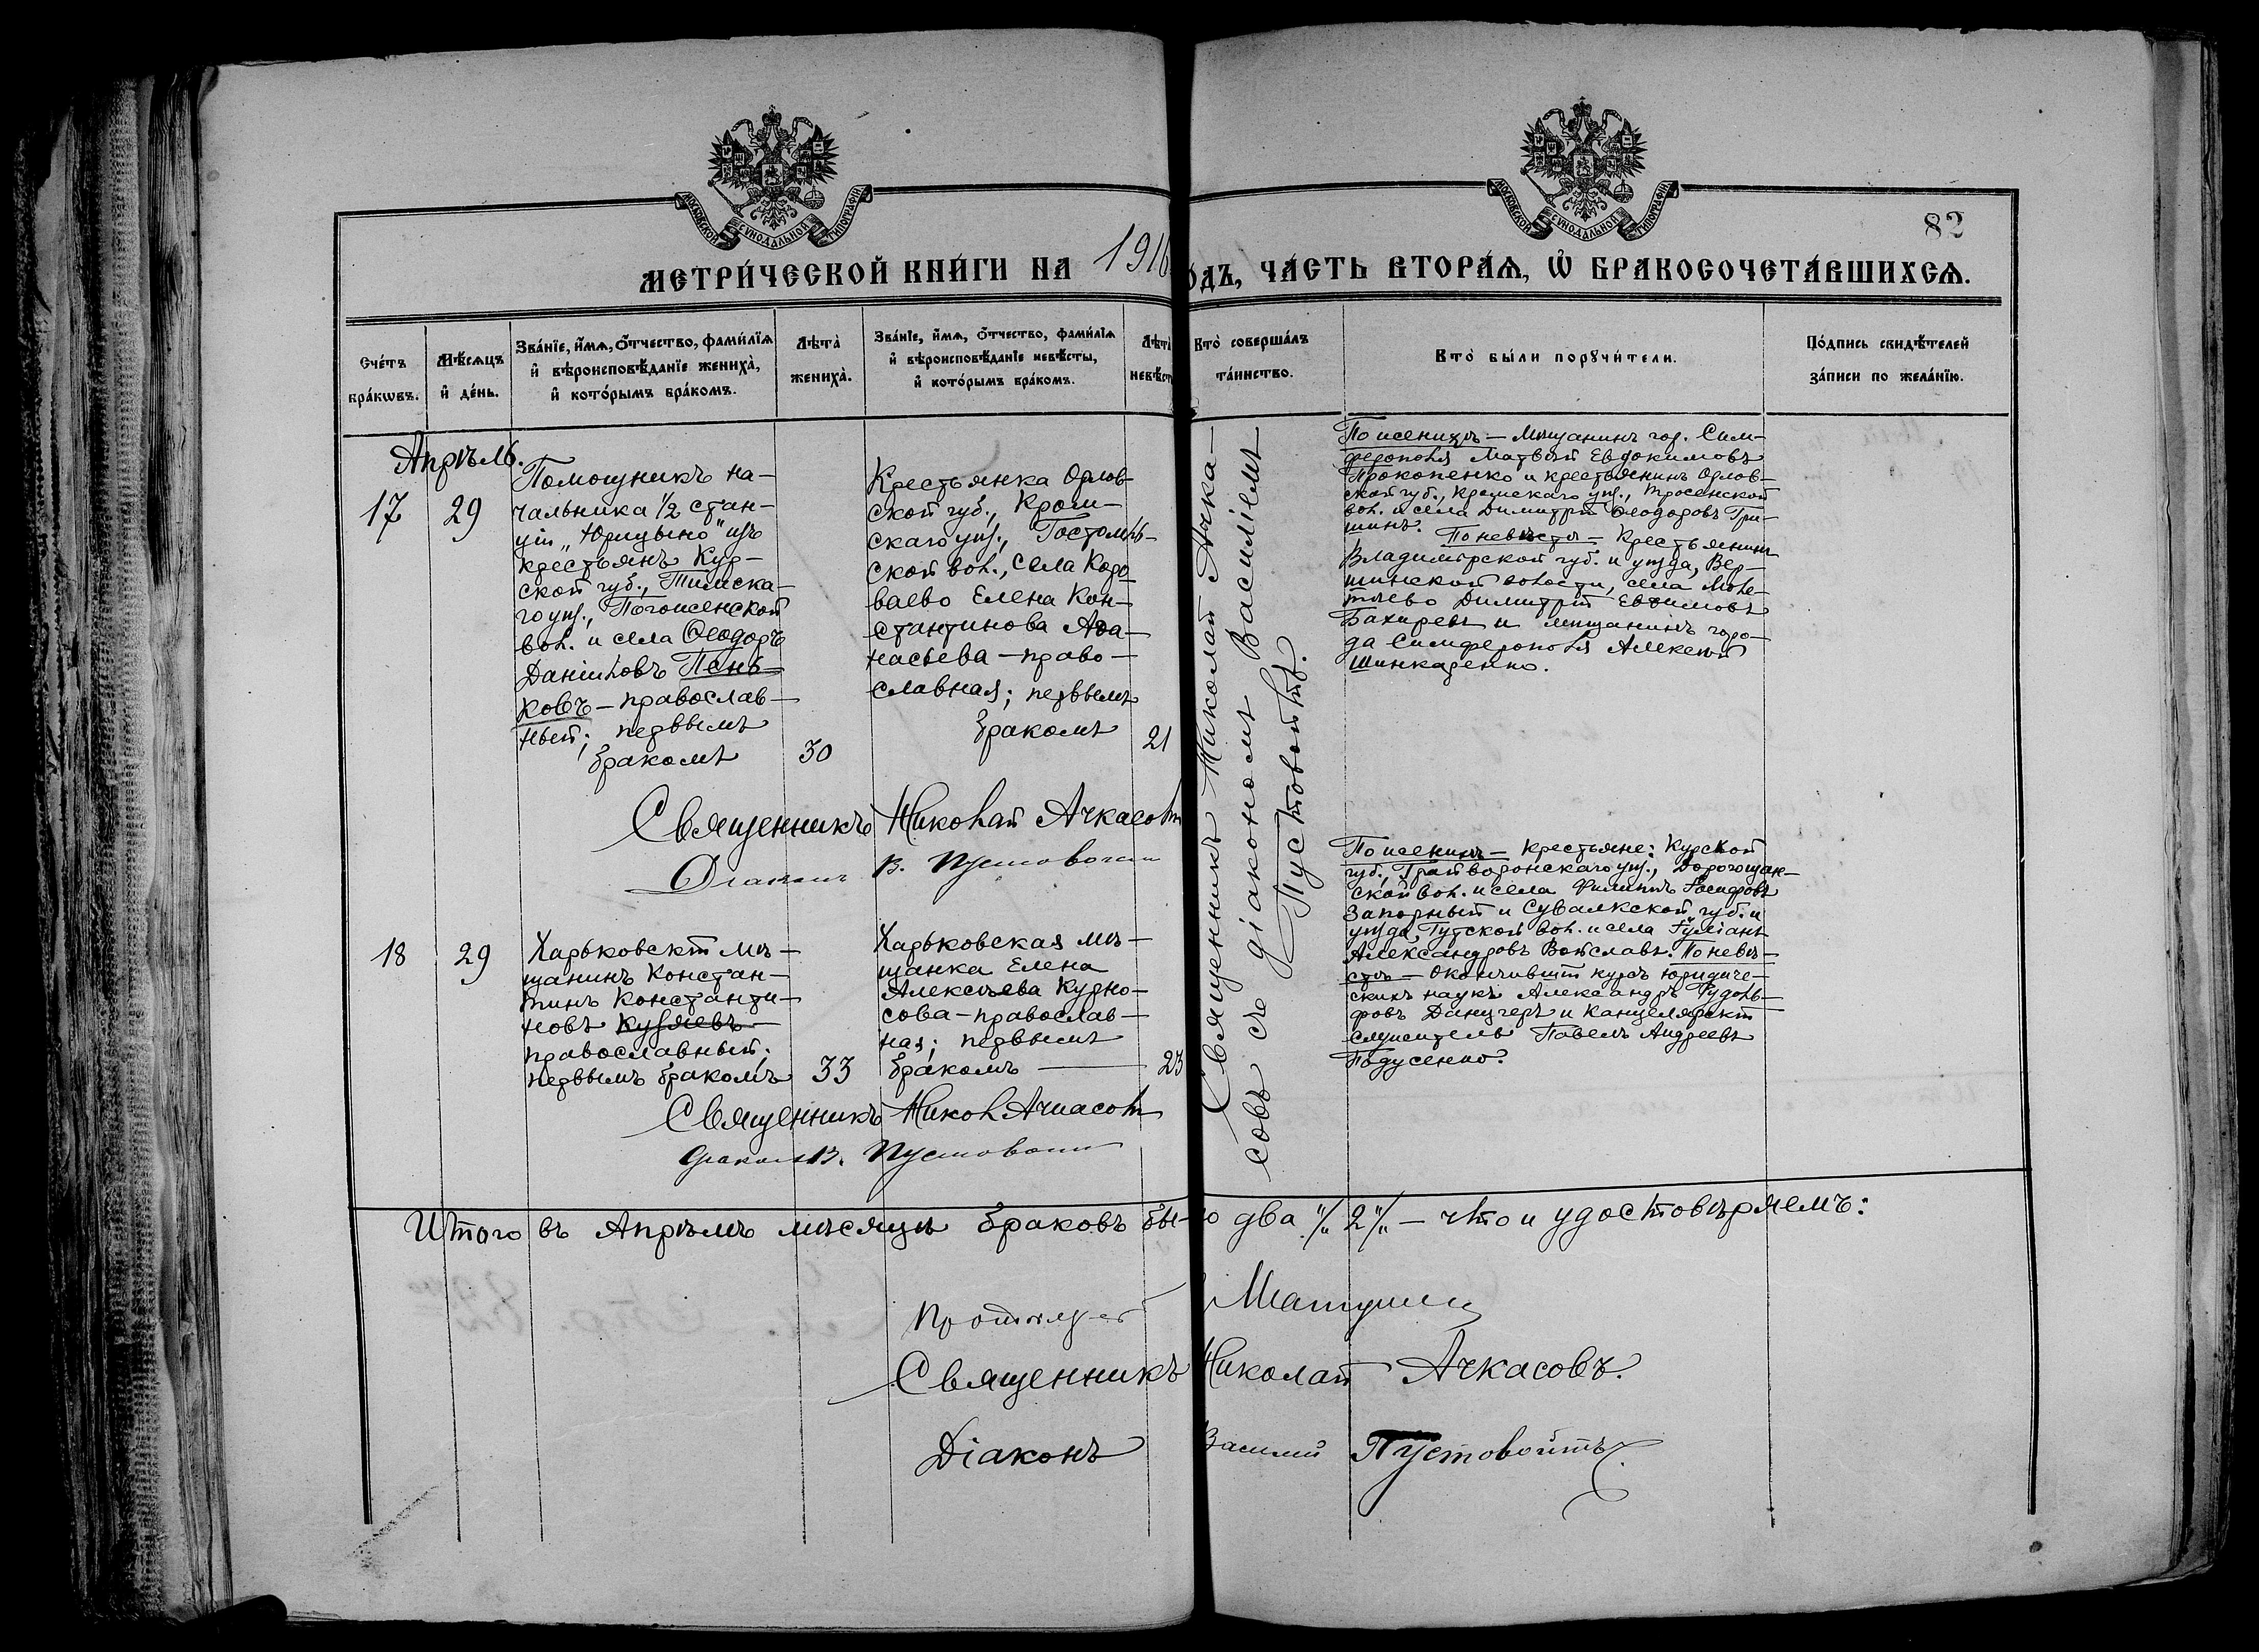 МОСКОВСКОЙ СѴНОДАЛЬНОЙ ТИПОГРАФІИ
МОСКОВСКОЙ СѴНОДАЛЬНОЙ ТИПОГРАФІИ
82
МЕТРИ́ЧЕСКОЙ КНИ́ГИ НА 1916
ОДЪ, ЧА́СТЬ ВТОРА́Ѧ, Ѽ БРАКОСОЧЕТА́ВШИХСѦ.
Сче́тъ
бра́кѡвъ.
Мѣ́сѧцъ
и҆ де́нь.
Зва́нїе, и҆́мѧ, ѻ҆́тчество, фами́лїѧ
и҆ вѣроисповѣ́данїе жениха̀,
и҆ кото́рымъ бра́комъ.
Лѣта̀
жениха̀.
Зва́нїе, и҆́мѧ, ѻ҆́тчество, фами́лїѧ
и҆ вѣроисповѣ́данїе невѣ́сты,
и҆ кото́рымъ бра́комъ.
Лѣта̀
невѣст
Кто̀ соверша́лъ
та́инство.
Кто̀ бы́ли порꙋчи́тели.
По́дпись свидѣ́телей
за́писи по жела́нїю.
Апрѣль.
17
29
Помощникъ на-
чальника 1/2 стан-
ціи „Юрицыно" изъ
крестьянъ Кур-
ской губ., Тимска-
го уѣз., Погоженской
вол. и села Ѳеодоръ
Даніиловъ Пень-
ковъ – православ-
ный; первымъ
бракомъ
30
Крестьянка Орлов-
ской губ., Кром-
скаго уѣз., Гостомль-
ской вол., села Коро-
ваево Елена Кон-
стантинова Аѳа-
насьева – право-
славная; первымъ
бракомъ
21
Священникъ Николай Ачка-
совъ съ діакономъ Василіемъ
Пустовойтъ.
По женихѣ – Мѣщанинъ гор. Сим-
ферополя Матвѣй Евдокимовъ
Прокопенко и крестьянинъ Орлов-
ской губ., Кромскаго уѣз., Тросенской
вол. и села Димитрій Ѳеодоровъ Гри-
шинъ. По невѣстѣ – Крестьянинъ
Владимірской губ. и уѣзда, Вер-
шинской волости, села
Димитрій Евѳимовъ
Бахиревъ и мѣщанинъ горо-
да Симферополя Алексѣй
Шинкаренко.
Священникъ Николай Ачкасовъ
Діаконъ В. Пустовойтъ
18
29
Харьковскій мѣ-
щанинъ Констан-
тинъ Константи-
новъ Кузяевъ –
православный;
первымъ бракомъ
33
Харьковская мѣ-
щанка Елена
Алексѣева Курно-
сова – православ-
ная; первымъ
бракомъ
23
По женихѣ – Крестьяне: Курской
губ., Грайворонскаго уѣз., Дорогощан-
ской вол. и села Филиппъ Іосифовъ
Запорный и Сувалкской губ. и
уѣзда, Гутской вол. и села Іуліанъ
Александровъ Войславъ. По невѣ-
стѣ – Окончившій курсъ юридиче-
скихъ наукъ Александръ Рудоль-
фовъ Данцгеръ и канцелярскій
служитель Павелъ Андреевъ
Подусенко.
Священникъ Никол. Ачкасовъ
Діаконъ В. Пустовойтъ
Итого въ Апрѣлѣ мѣсяцѣ браковъ бы-
о два „/„ 2 „/„ – что и удостовѣряемъ:
Протоіерей
Священникъ Николай Ачкасовъ.
Діаконъ Василій Пустовойтъ.